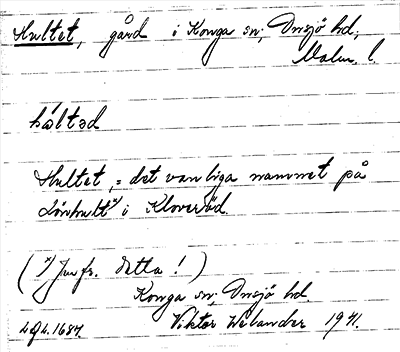 Hultet, gård i Konga sn; Onsjö hd;
Malm. l.
håltəd
Hultet, = det vanliga namnet på
Lönhult x) i Kloveröd.
( x) Jmfr. detta ! )
Konga sn; Onsjö hd.
Viktor Welander 1941.